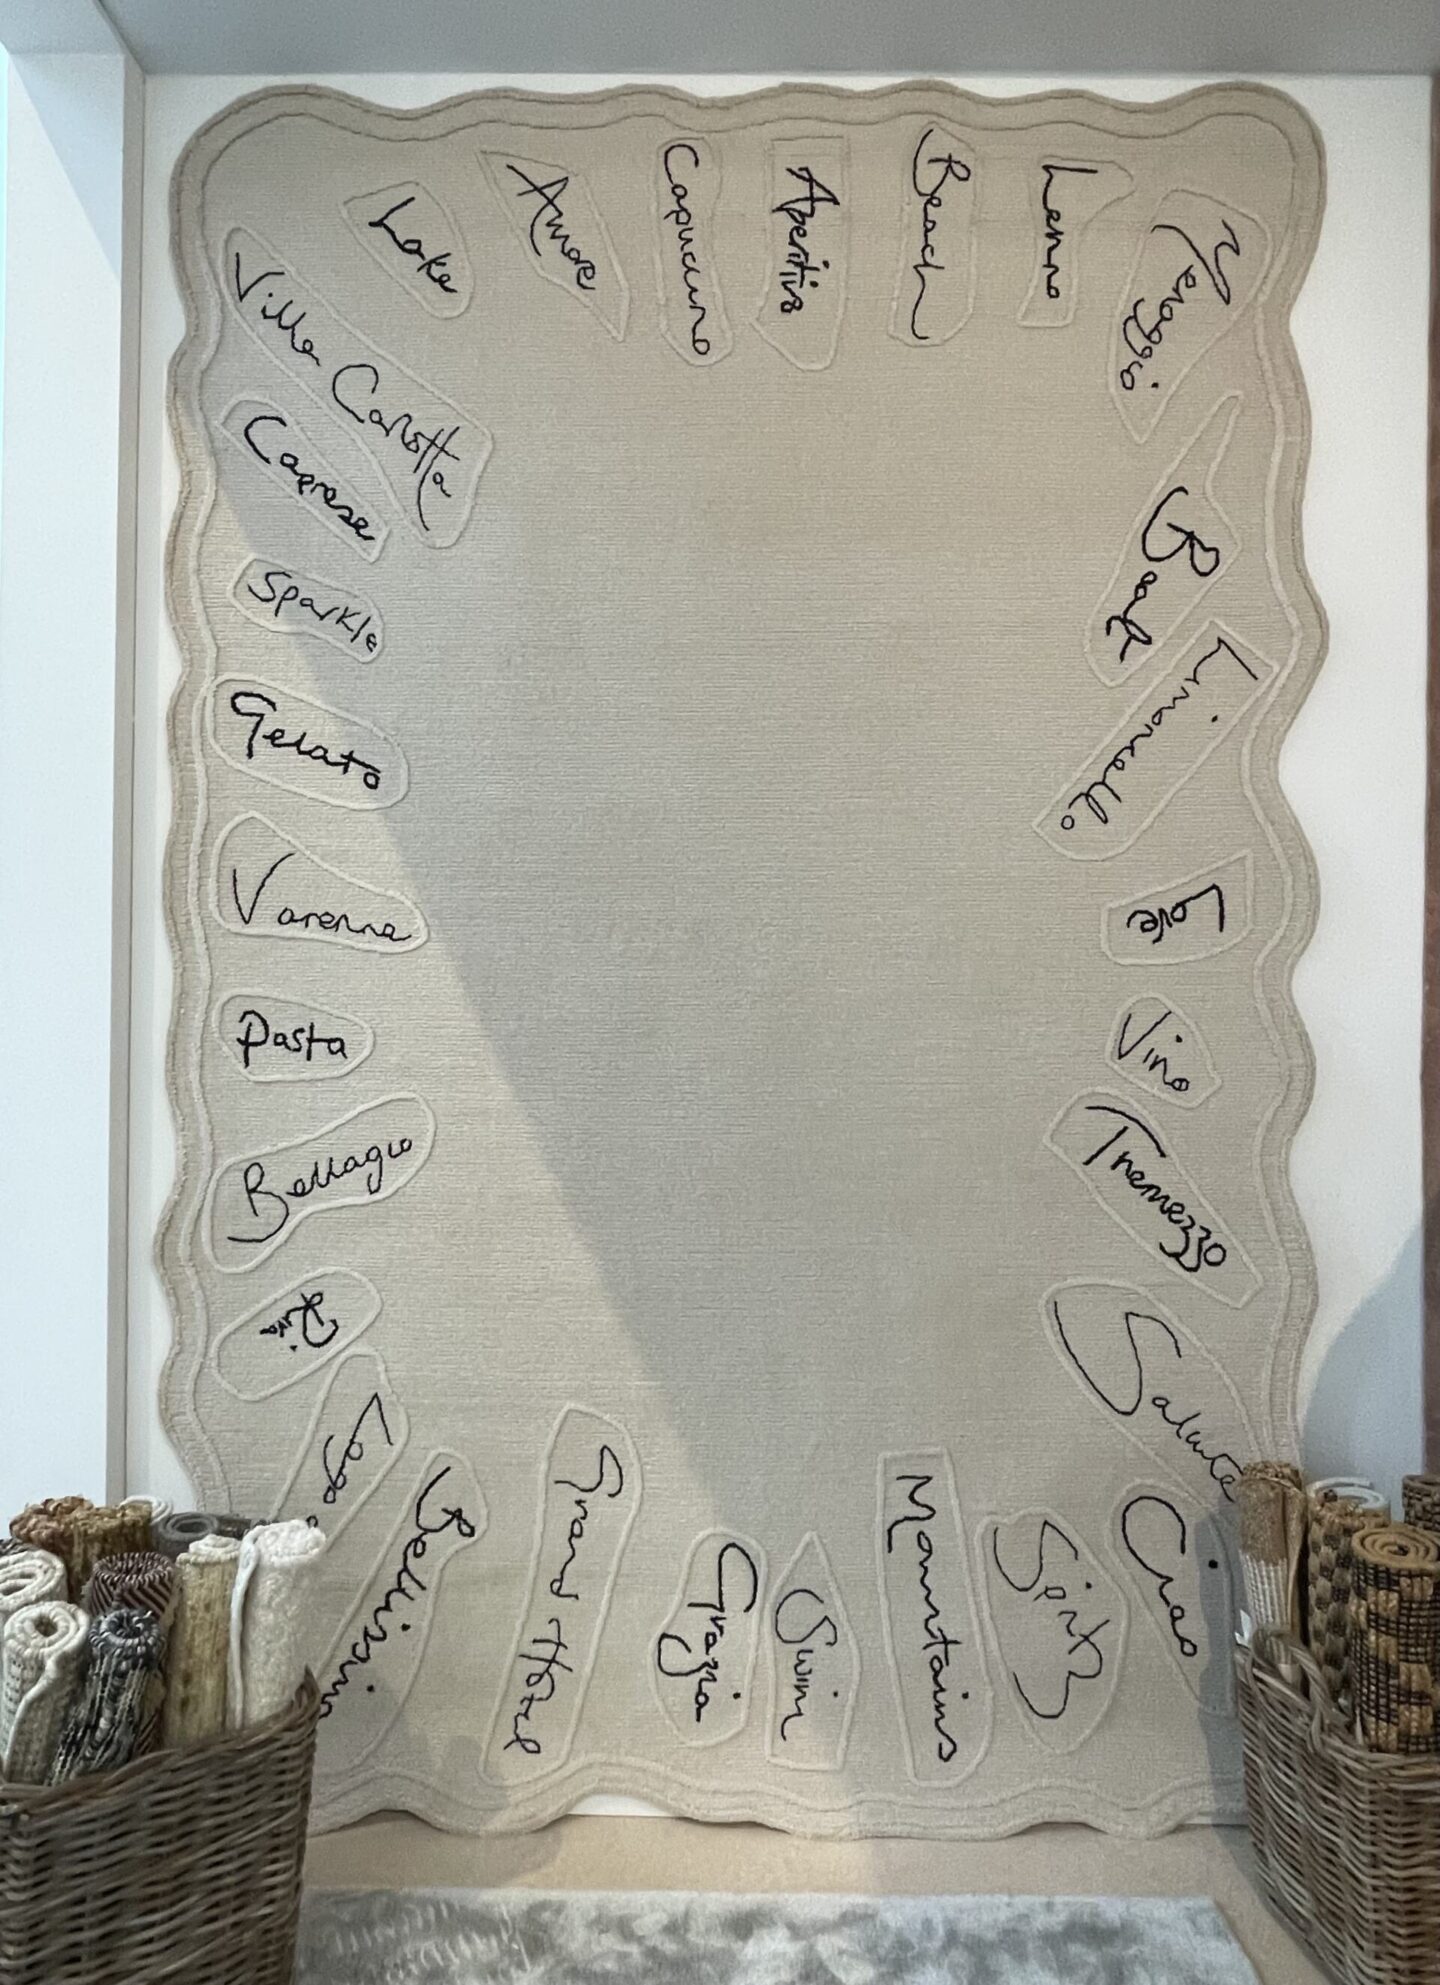 Lake
Amore
Capucino
Aperitivo
Beach
Lenno
Villa Carlotta
Caprese
Sparkle
Gelato
Varenna
Pasta
Bellagio
Riva
Lago
Bellissim
Grand Hotel
Grazia
Swim
Mountains
Spritz
Ciao
Salute
Tremezzo
Vino
Love
Limoncello
Boat